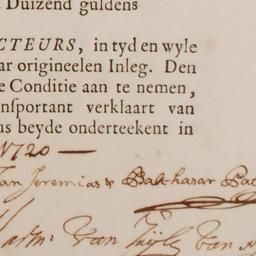 Duizend guldens
CTEURS, in tyd en wyle
ar origineelen Inleg. Den
e Conditie aan te nemen,
nsportant verklaart van
us beyde onderteekent in
1720 —
an Jeremias & Balthasar
van Tuÿll van